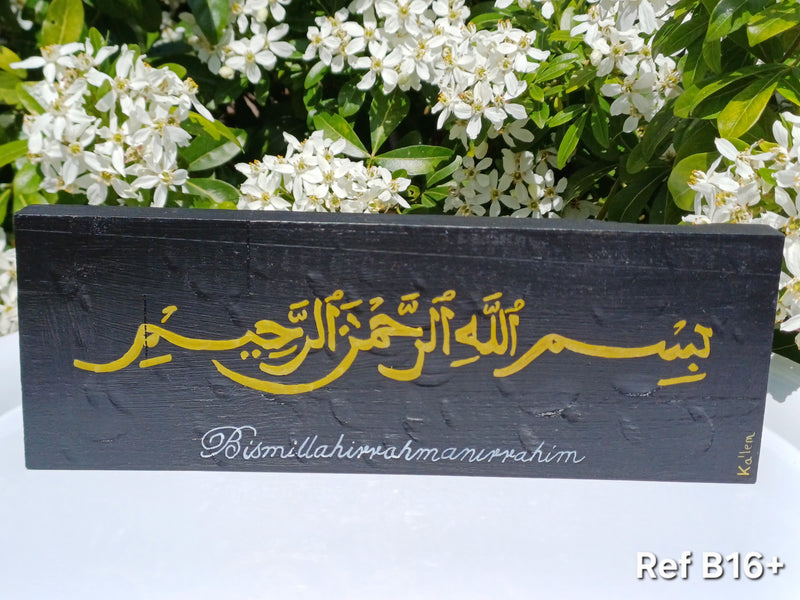 بِسْمِ اللَّهِ الرَّحْمٰنِ الرَّحِيمِ
Bismillahirrahmanirrahim
Ka'lem
Ref B16+